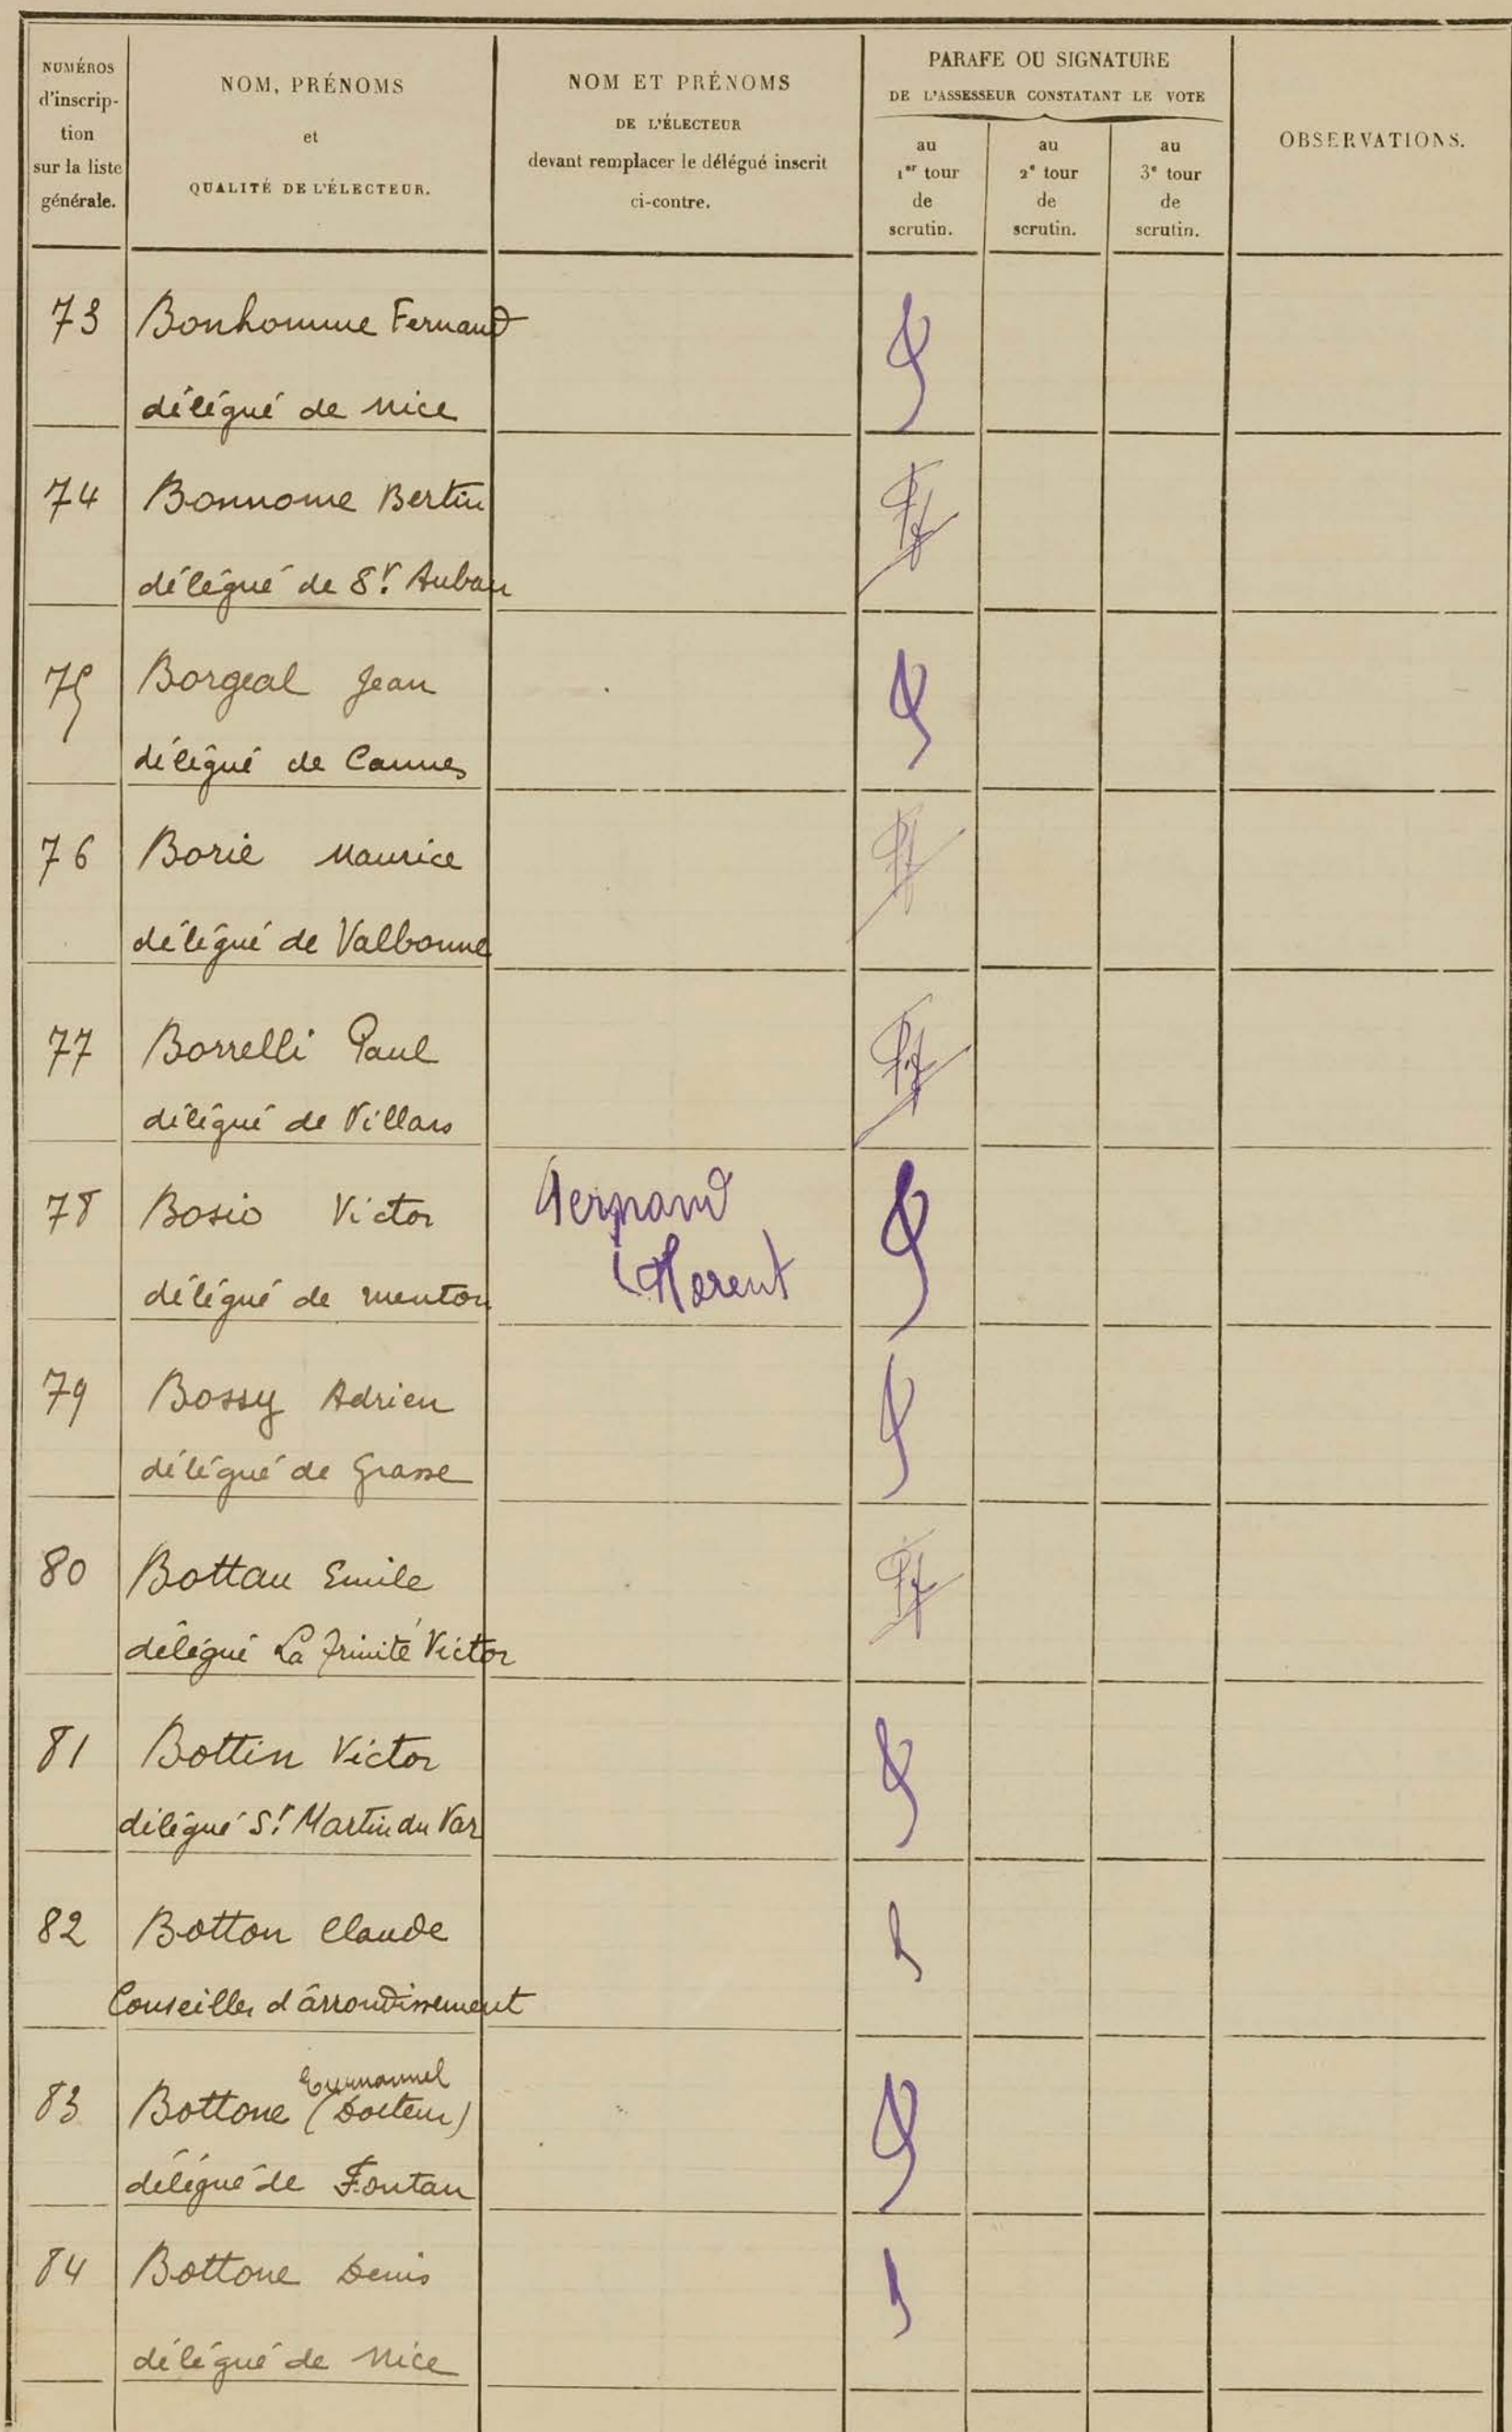 NUMÉROS
d'inscrip-
tion
sur la liste
générale.
NOM, PRÉNOMS
et
QUALITÉ DE L'ÉLECTEUR.
NOM ET PRÉNOMS
DE L'ÉLECTEUR
devant remplacer le délégué inscrit
ci-contre.
PARAFE OU SIGNATURE
DE L'ASSESSEUR CONSTATANT LE VOTE
au
1er tour
de
scrutin.
au
2e tour
de
scrutin.
au
3e tour
de
scrutin.
OBSERVATIONS.
73 Bonhomme Fernand
délégué de Nice
74 Bonnome Bertin
délégué de St Auban
75 Borgeal Jean
délégué de Cannes
76 Borie Maurice
délégué de Valbonne
77 Borrelli Paul
délégué de Villars
78 Bosio Victor
délégué de Menton
Florent
79 Bossy Adrien
délégué de Grasse
80 Bottau Emile
délégué La Trinité Victor
81 Bottin Victor
délégué St Martin du Var
82 Botton Claude
Conseiller d'arrondissement
Emmanuel
83 Bottone (Docteur)
délégué de Fontan
84 Bottone Denis
délégué de Nice